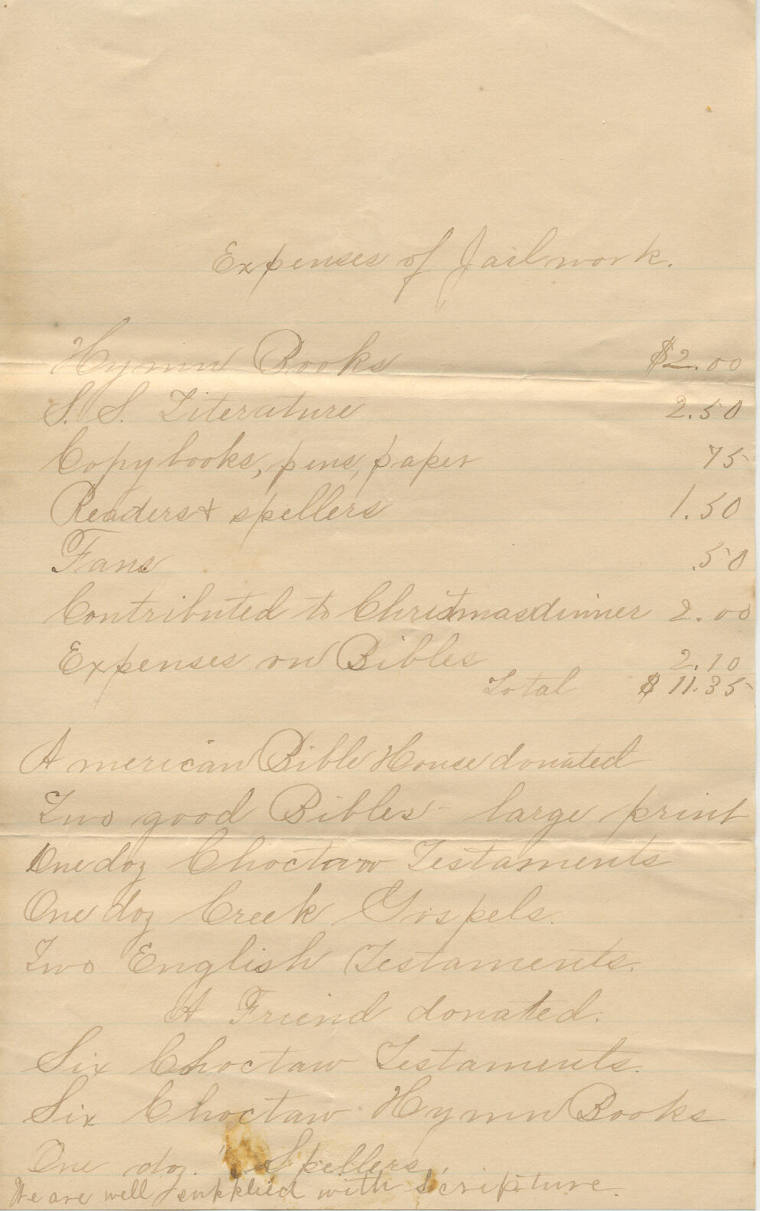 Expenses of Jail work.
Hymn Books $2.00
S. S. Literature 2.50
Copy books, pens, paper 75
Readers & spellers 1.50
Fans .50
Contributed to Christmas dinner 2.00
Expenses on Bibles 2.10
Total $11.35
American Bible House donated
Two good Bibles - large print
One doz Choctaw Testaments
One doz Creek Gospels.
Two English Testaments.
A Friend donated.
Six Choctaw Testaments.
Six Choctaw Hymn Books
One do. Spellers.
We are well supplied with scripture.